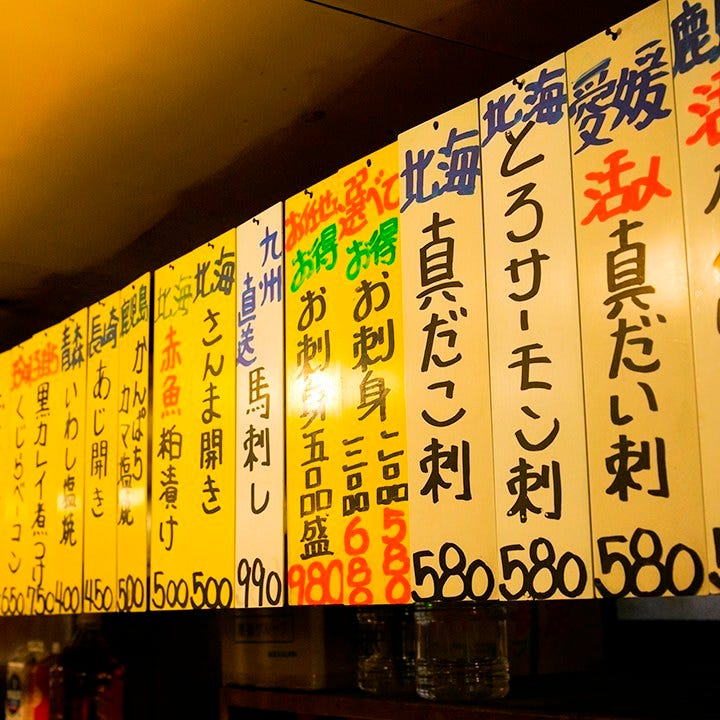 鹿
活
愛媛
活〆
真だい刺
580
北海
とろサーモン刺
580
北海
真だこ刺
580
選べて
お得
お刺身
二品
580
三品
680
お任せ
お得
お刺身五品盛
980
九州
直送
馬刺し
990
北海
さんま開き
500
北海
赤魚粕漬け
500
鹿児島
かんぱち
カマ塩焼
500
長崎
あじ開き
450
青森
いわし塩焼
400
黒カレイ煮つけ
750
くじらベーコン
650